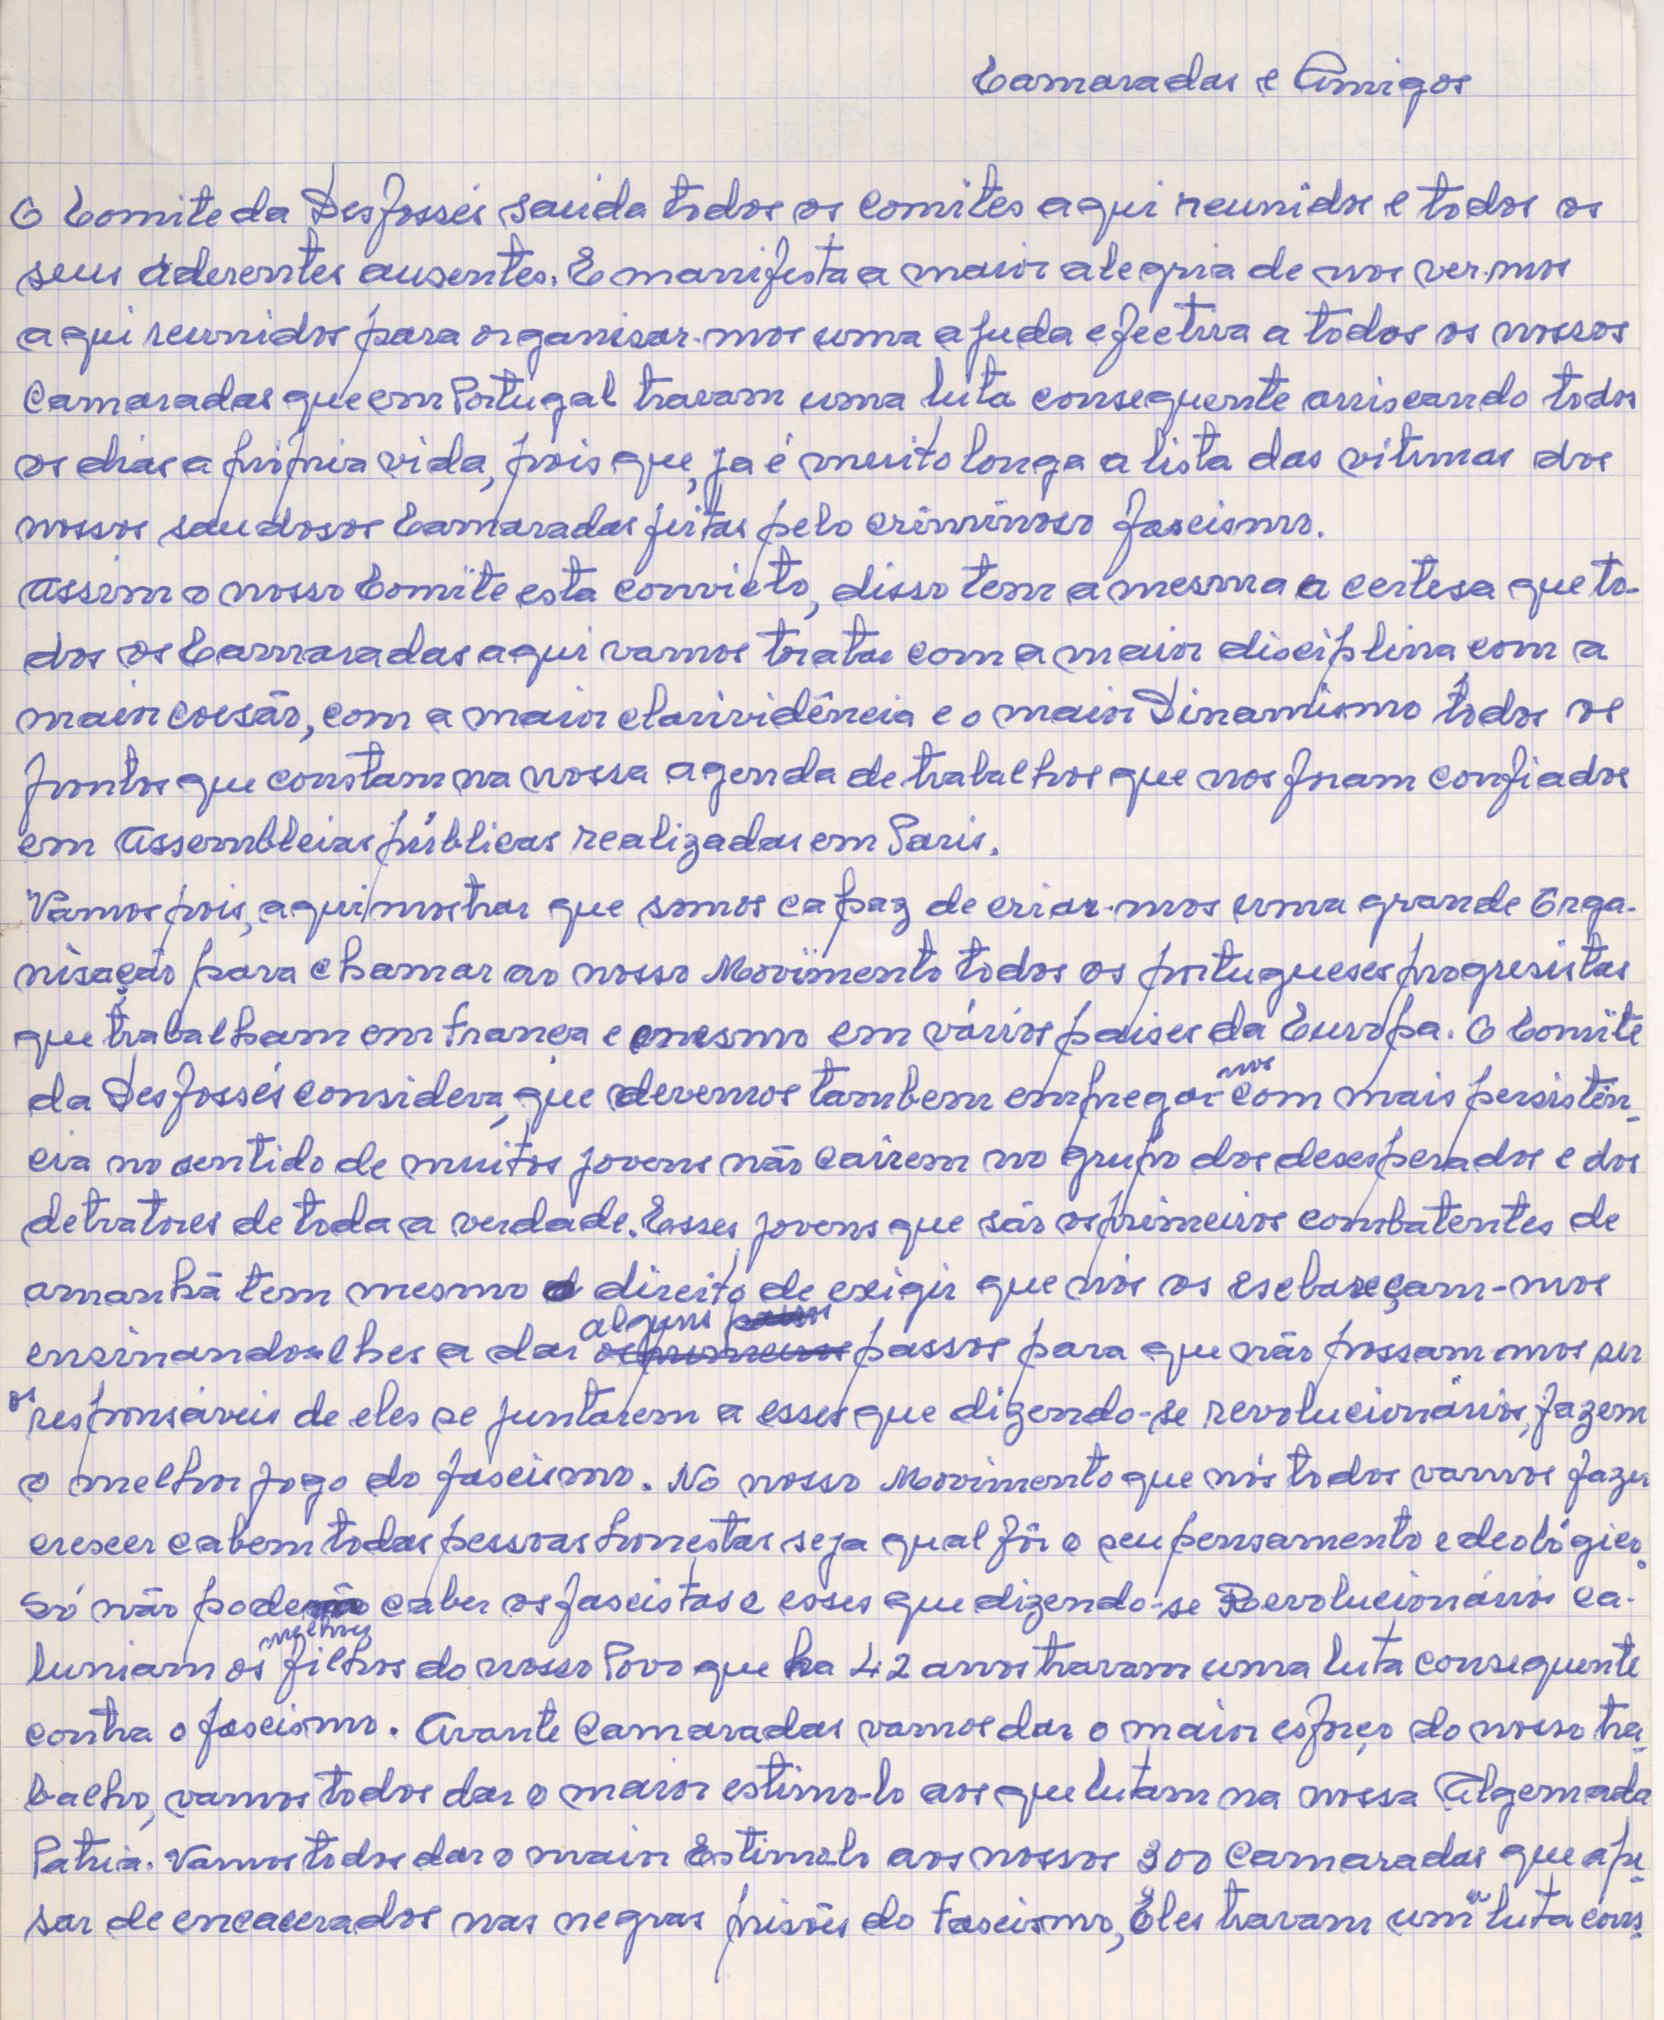 Camaradas e Amigos
O Comite da Desfossés saúda todos os comites aqui reunidos e todos os
seus aderentes ausentes. E manifesta a maior alegria de nos ver-mos
aqui reunidos para organisar-mos uma ajuda efectiva a todos os nossos
Camaradas que em Portugal travam uma luta consequente arriscando todos
os dias a própria vida, pois que, ja é muito longa a lista das vitimas dos
nossos saudosos Camaradas feitas pelo criminoso fascismo.
Assim o nosso Comite esta convicto, disso tem a mesma a certesa que to-
dos os Camaradas aqui vamos tratar com a maior disciplina com a
maior coesão, com a maior clarividência e o maior Dinamismo todos os
pontos que constam na nossa agenda de trabalhos que nos foram confiados
em Assembleias públicas realizadas em Paris.
Vamos pois, aqui mostrar que somos capaz de criar-mos uma grande Orga-
nisação para chamar ao nosso Movimento todos os portugueses progresistas
que trabalham em frança e mesmo em vários paises da Europa. O Comite
da Desfossés considera, que devemos tambem empregar-nos com mais persistên-
cia no sentido de muitos jovens não caírem no grupo dos desesperados e dos
detratores de toda a verdade. Esses jovens que são os primeiros combatentes de
amanhã tem mesmo o direito de exigir que nós os esclareçam-mos
ensinando-lhes a dar os primeiros alguns passos passos para que não possam-mos ser
os responsáveis de eles se juntarem a esses que dizendo-se revolucionários, fazem
o melhor jogo do fascismo. No nosso Movimento que nós todos vamos fazer
crescer cabem todas pessoas honestas seja qual fôr o seu pensamento edeológico.
Só não poderão caber os fascistas e esses que dizendo-se Revolucionários ca-
luniam os melhores filhos do nosso Povo que ha 42 anos travam uma luta consequente
contra o fascismo. Avante Camaradas vamos dar o maior esforço do nosso tra-
balho, vamos todos dar o maior estimo-lo aos que lutam na nossa Algemada
Patria. Vamos todos dar o maior Estimolo aos nossos 300 Camaradas que ape-
sar de encacerados nas negras prisões do Fascismo, Eles travam uma luta cons-